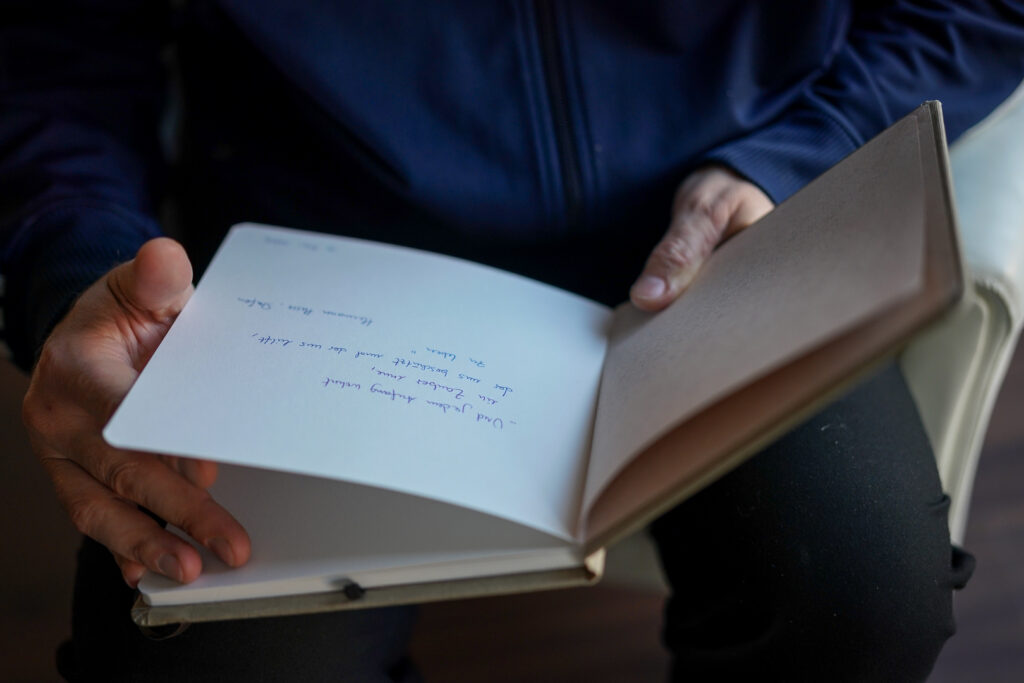 „Und jedem Anfang wohnt
ein Zauber inne,
der uns beschützt und der uns hilft,
zu leben“
Hermann Hesse, Stufen